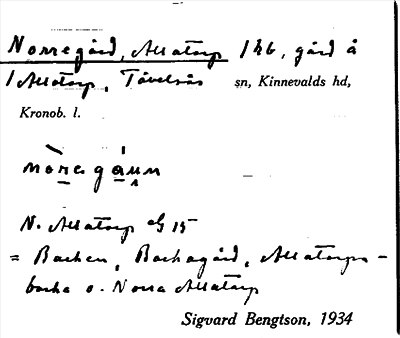 Norregård, Allatorp 1/26, gård å
1 Allatorp, Tävelsås sn, Kinnevalds hd,
Kronob. l.
nòregá̱ʌn
N. Allatorp eG 15
= Backen, Backagård, Allatorps-
backe o. Norra Allatorp
Sigvard Bengtson, 1934